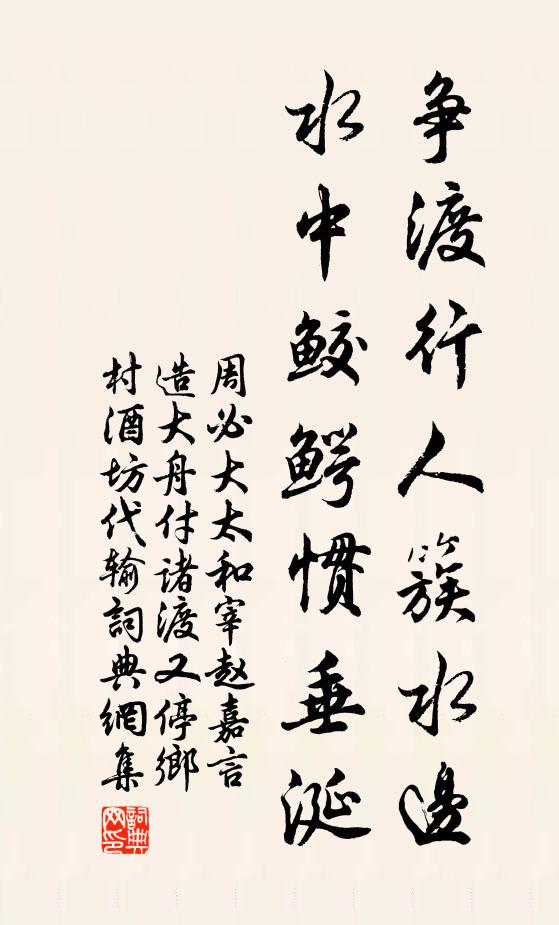 争渡行人簇水邊
水中鮫鳄慣垂涎
周必大太和宰赵嘉言
造大舟付诸渡又停鄉
村酒坊代输詞典網集
詞典
网印